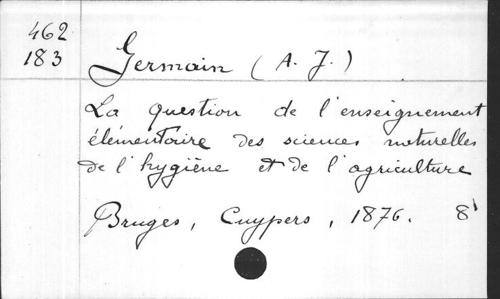 462
183
Germain (A. J.)
La question de l'enseignement
élémentaire des sciences naturelles
de l'hygiène et de l'agriculture
Bruges, Cuypers, 1876. 8°